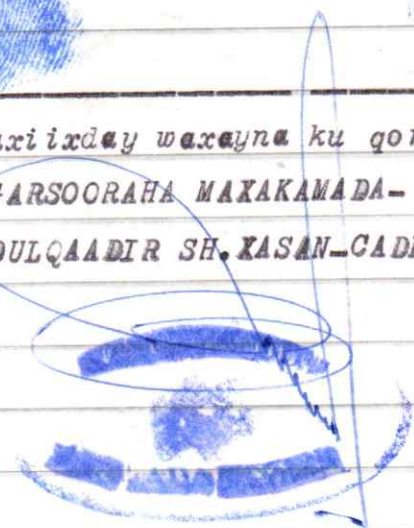 axiixday waxayna ku qor
GARSOORAHA MAXAKAMADA-
DULQAADIR SH.XASAN-CAD